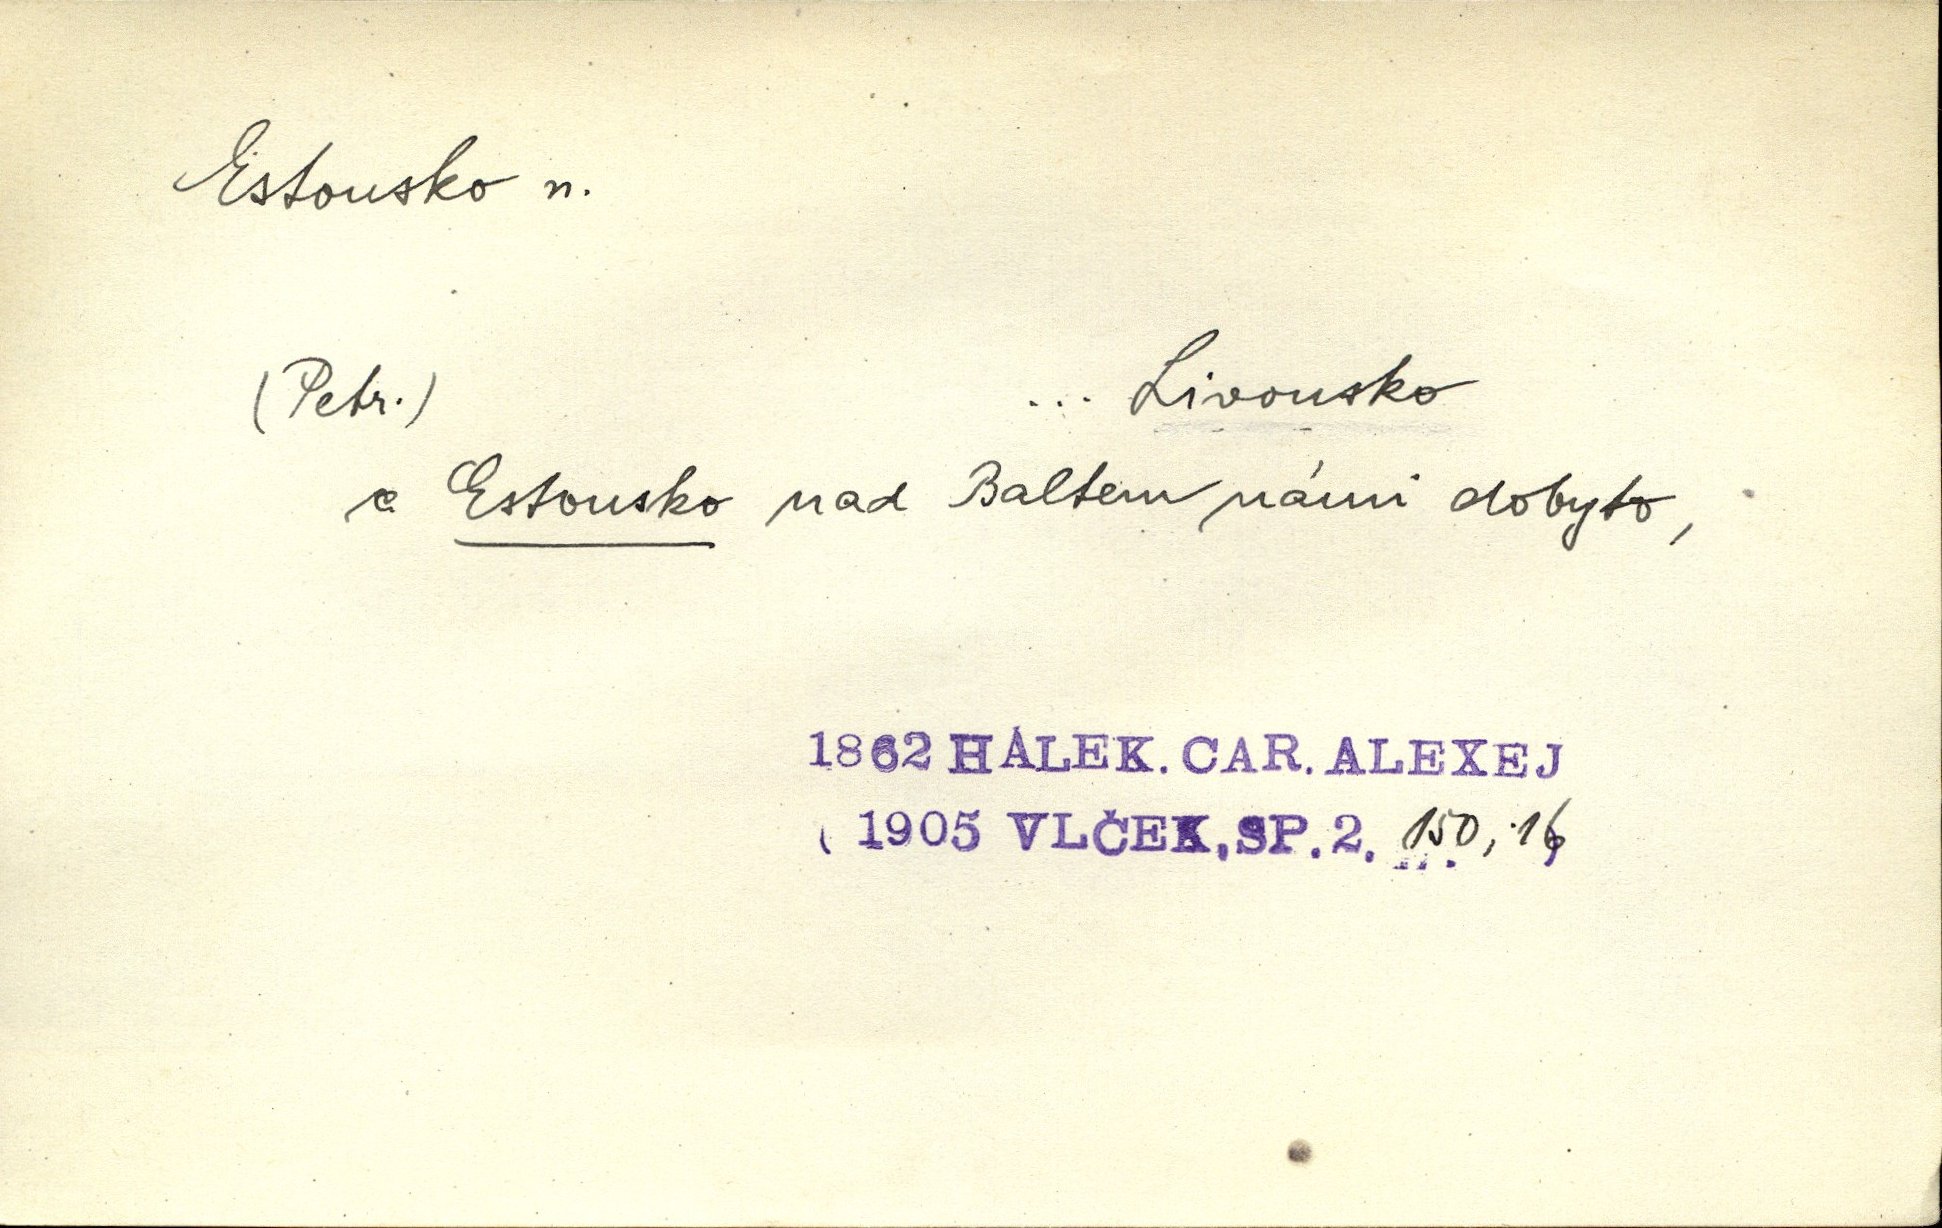 Estonsko n.
(Petr.) ... Livonsko
a Estonsko nad Baltem námi dobyto,
1862 HÁLEK. CAR. ALEXEJ
( 1905 VLČEK, SP. 2. 150, 16